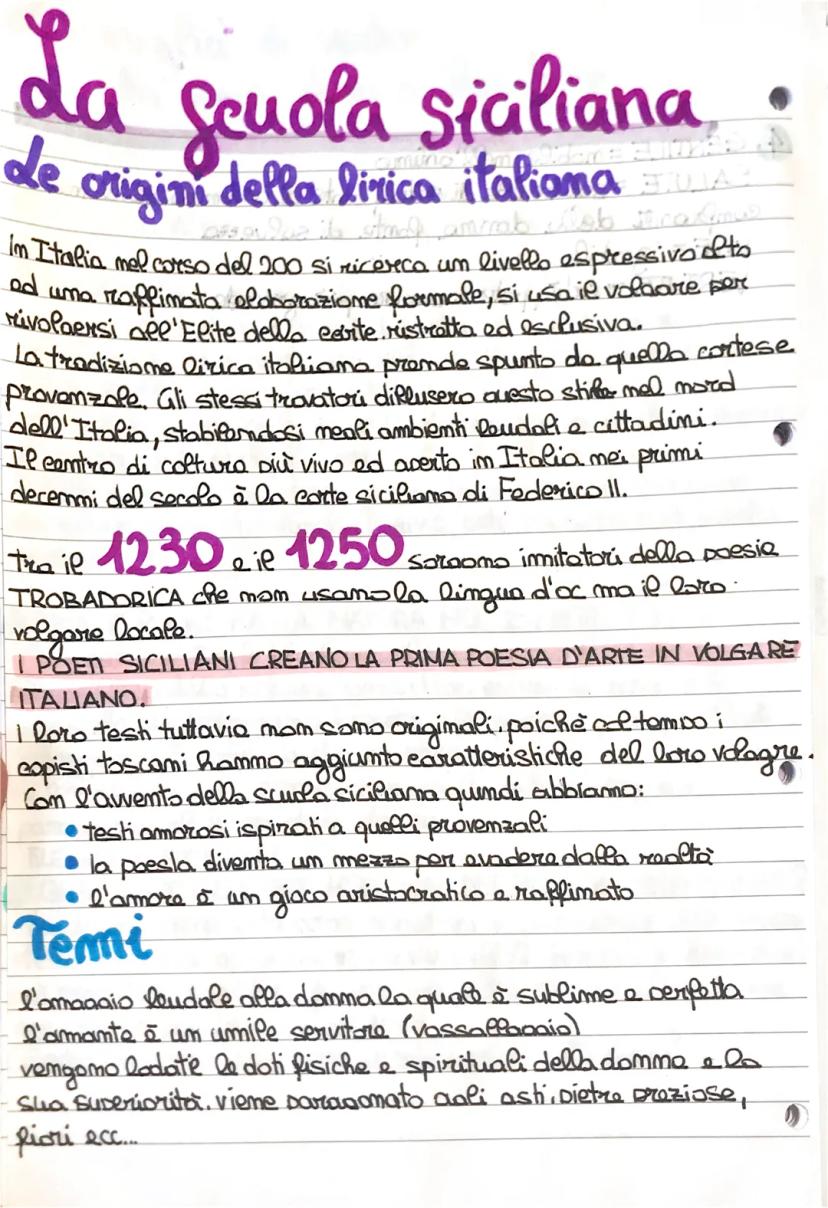 La scuola siciliana
Le origini della lirica italiana
In Italia nel corso del 200 si ricerca un livello espressivo alto
ed una raffinata elaborazione formale, si usa il volgare per
rivolgersi all'Elite della corte. ristretta ed esclusiva.
La tradizione lirica italiana prende spunto da quella cortese
provenzale. Gli stessi trovatori diffusero questo stile nel nord
dell'Italia, stabilendosi negli ambienti feudali e cittadini.
Il centro di cultura più vivo ed aperto in Italia nei primi
decenni del secolo è la corte siciliana di Federico II.
Tra il 1230 e il 1250 sorgono imitatori della poesia
TROBADORICA che non usano la lingua d'oc ma il loro
volgare locale.
I POETI SICILIANI CREANO LA PRIMA POESIA D'ARTE IN VOLGARE
ITALIANO.
I loro testi tuttavia non sono originali, poichè col tempo i
copisti toscani hanno aggiunto caratteristiche del loro volagre.
Con l'avvento della scuola siciliana quindi abbiamo:
• testi amorosi ispirati a quelli provenzali
• la poesia diventa un mezzo per evadere dalla realtà
• l'amore è un gioco aristocratico e raffinato
Temi
l'omaggio feudale alla donna la quale è sublime e perfetta
l'amante è un umile servitore (vassallaggio)
vengono lodate le doti fisiche e spirituali della donna e la
sua superiorità. viene paragonato agli astri, pietre preziose,
fiori ecc...